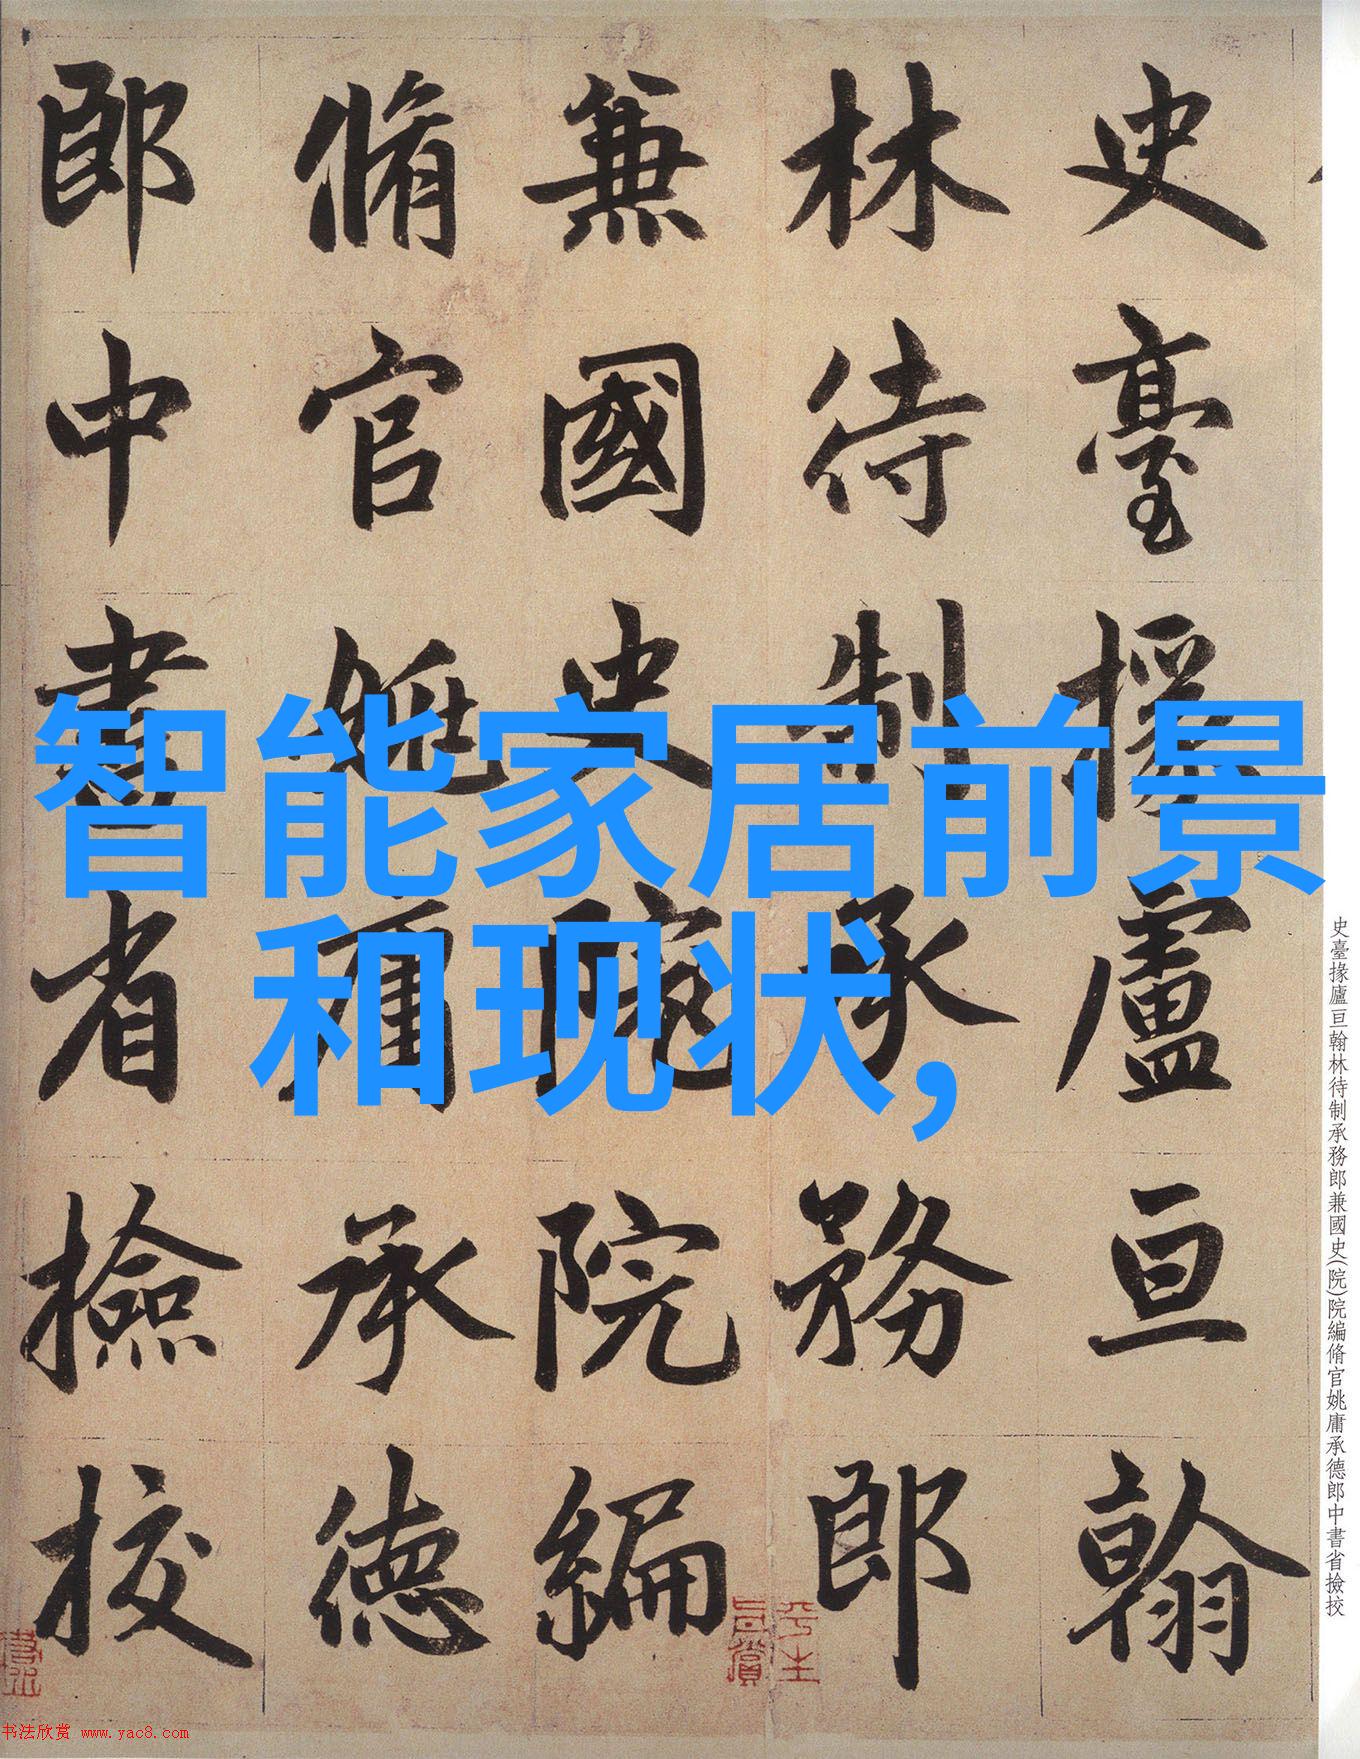 史臺掾廬亘翰
林待制承務郎
兼國史院院編
脩官姚庸承德
郎中書省撿挍
智能家居前景
和现状,
史臺掾廬亘翰林待制承務郎兼國史(院)院編脩官姚庸承德郎中書省撿挍
书法欣赏 www.yac8.com